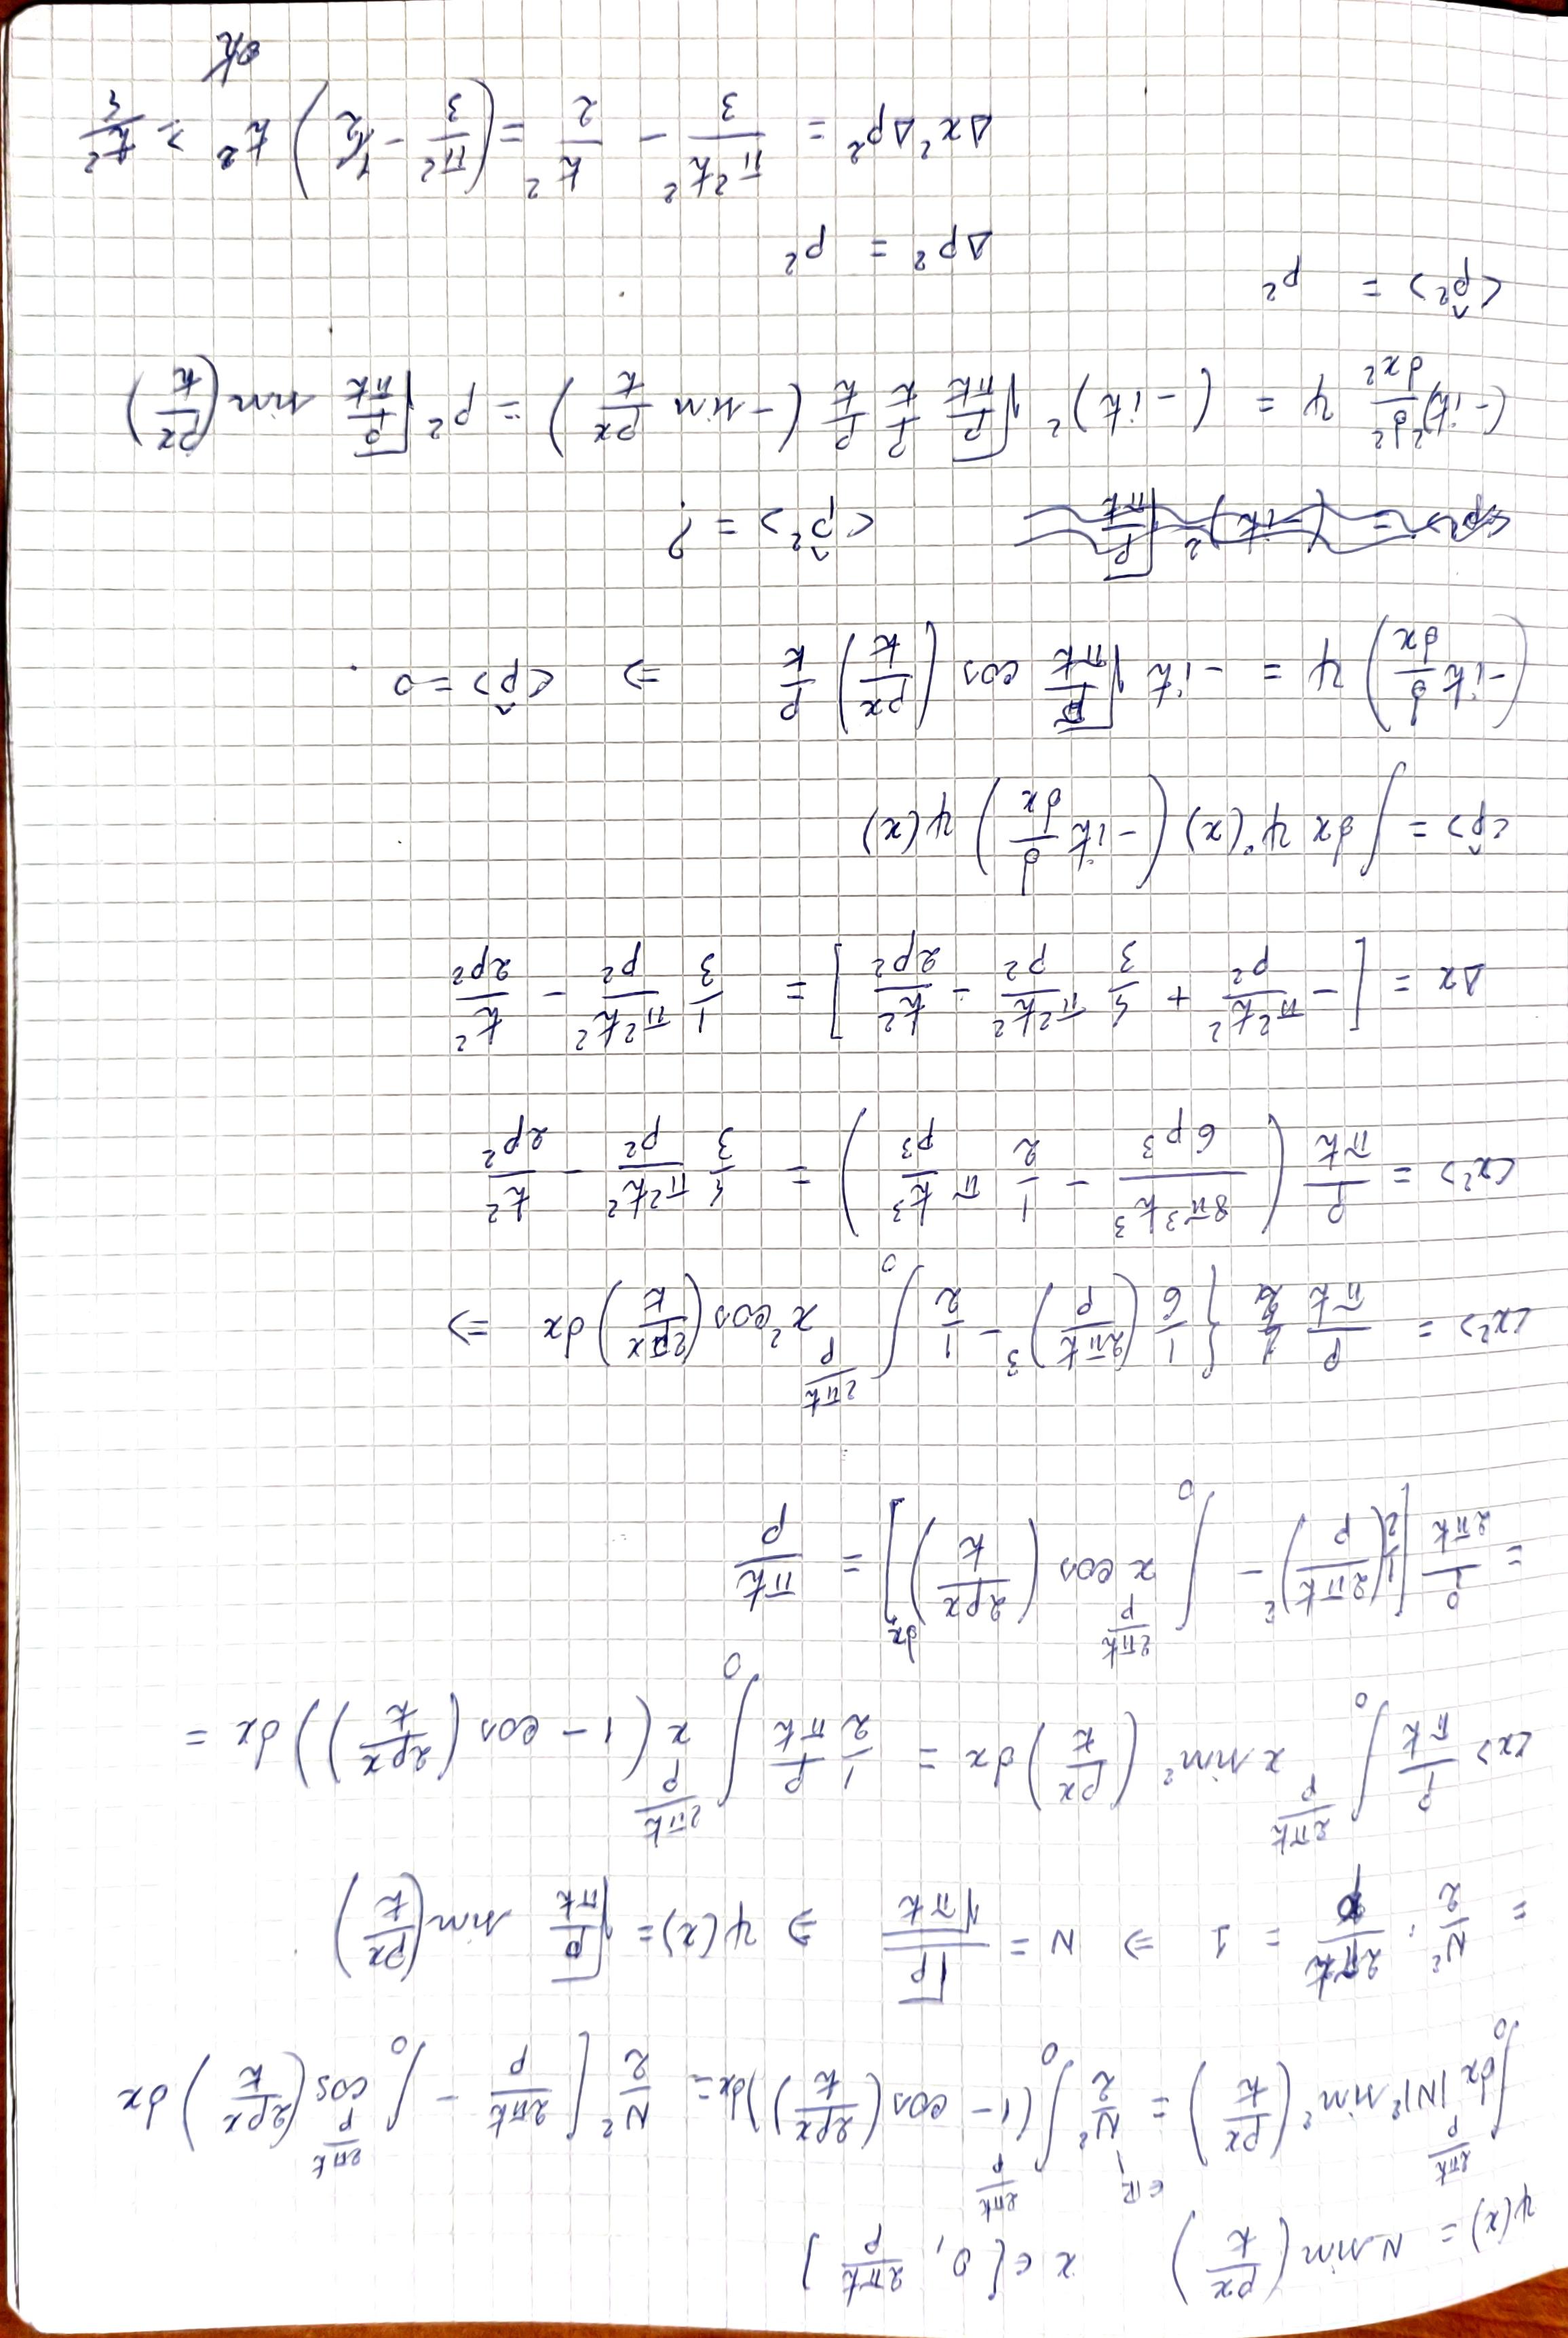 ψ(x) = N sin(px/ħ)   x ∈ [0, 2πħ/p]
∫₀^{2πħ/p} dx |N|² sin²(px/ħ) = N²/2 ∫₀^{2πħ/p} (1 - cos(2px/ħ))dx = N²/2 [2πħ/p - ∫₀^{2πħ/p} cos(2px/ħ) dx
∈ℝ
= N²/2 · 2πħ/p = 1 ⇒ N = √p/√πħ ⇒ ψ(x) = √(p/πħ) sin(px/ħ)
<x> p/πħ ∫₀^{2πħ/p} x sin²(px/ħ) dx = 1/2 p/πħ ∫₀^{2πħ/p} x(1 - cos(2px/ħ)) dx =
= p/2πħ [1/2(2πħ/p)² - ∫₀^{2πħ/p} x cos(2px/ħ) dx] = πħ/p
<x²> = p/πħ { 1/6 (2πħ/p)³ - 1/2 ∫₀^{2πħ/p} x² cos(2px/ħ) dx ⇒
<x²> = p/πħ (8π³ħ³/6p³ - 1/2 π ħ³/p³) = 4/3 π²ħ²/p² - ħ²/2p²
Δx = [-π²ħ²/p² + 4/3 π²ħ²/p² - ħ²/2p²] = 1/3 π²ħ²/p² - ħ²/2p²
<p̂> = ∫dx ψ*(x) (-iħ d/dx) ψ(x)
(-iħ d/dx) ψ = -iħ √(p/πħ) cos(px/ħ) p/ħ ⇒ <p̂> = 0
<p²> = (-iħ)² √(p/πħ)   <p̂²> = ?
(-iħ)² d²/dx² ψ = (-iħ)² √(p/πħ) p/ħ p/ħ (-sin px/ħ) = p² √(p/πħ) sin(px/ħ)
<p̂²> = p²
Δp² = p²
Δx²Δp² = π²ħ²/3 - ħ²/2 = (π²/3 - 1/2) ħ² ≥ ħ²/4
ok